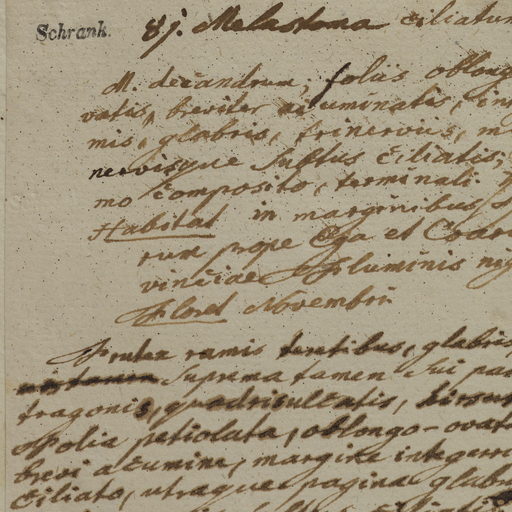 Schrank.
8j. Melastoma ciliatum
M. decandrum; foliis oblong
vatis, breviter acuminatis, in
mis, glabris, trinerviis, m
nervisque subtus ciliatis;
mo composito, terminali.
Habitat in marginibus
rum prope Ega et Coar
vinciae Fluminis nig
Floret Novembri
Frutex ramis teretibus, glabris
suprema tamen sui pa
tragonis, quadrisulcatis, hirsu
Folia petiolata, oblongo-ovat
brevi acumine, margine integerr
ciliato, utraque pagina glabr